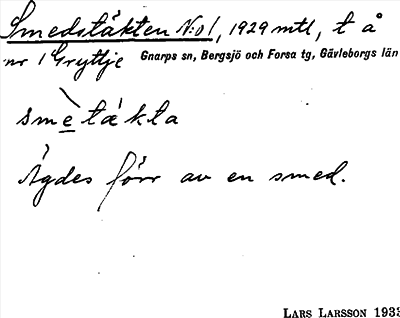 Smedstäkten N:o 1, 1929 mtl, t å
nr 1 Gryttje Gnarps sn, Bergsjö och Forsa tg, Gävleborgs län
smetäkta
Ägdes förr av en smed.
LARS LARSSON 1933